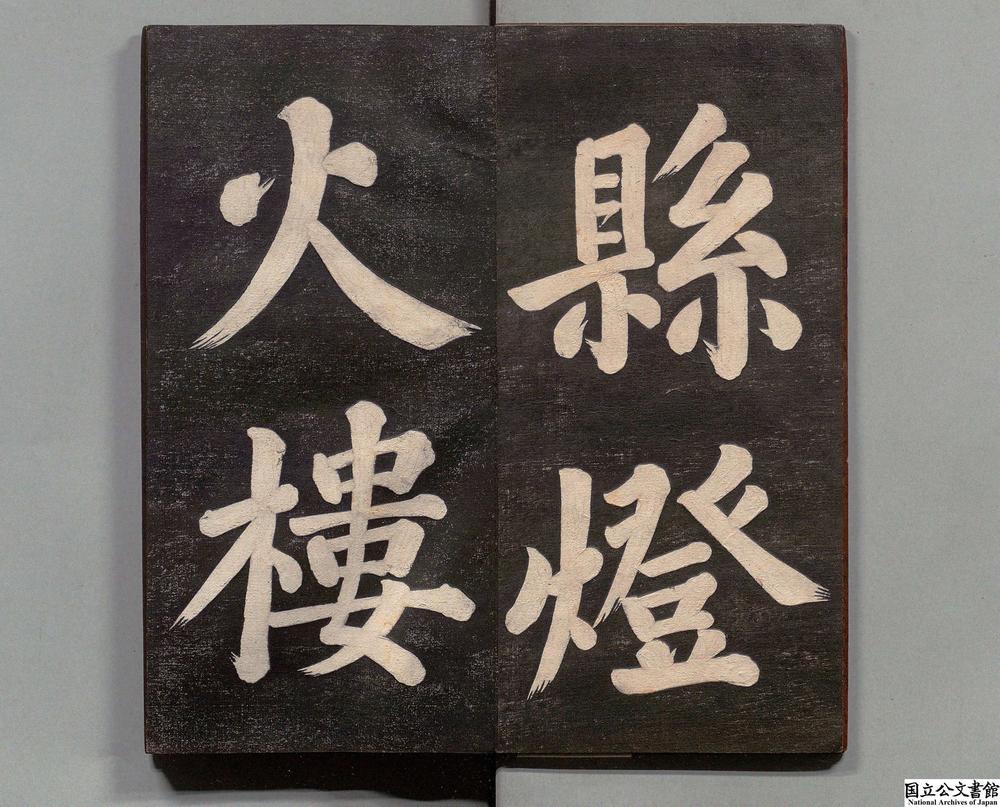 縣燈
火樓
国立公文書館
National Archives of Japan